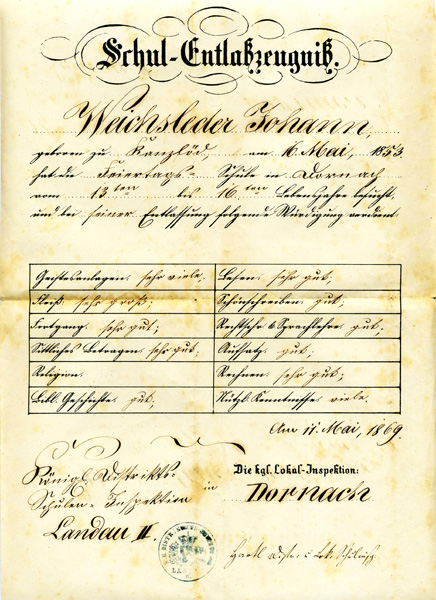 Schul-Entlaßzeugniß.
Weichsleder Johann,
geboren zu Kanzlöd, am 16. Mai, 1853.
hat die Feiertags- Schule in Dornach
vom 13.ten bis 16.ten Lebensjahre besucht,
und bei seiner Entlassung folgende Würdigung verdient:
Geistesanlagen: sehr viele;
Lesen: sehr gut;
Fleiß: sehr groß;
Schönschreiben: gut;
Fortgang: sehr gut;
Rechtschr. & Sprachlehre: gut;
Sittliches Betragen: sehr gut;
Aufsatz: gut;
Religion:
Rechnen: sehr gut;
Bibl. Geschichte: gut;
Nützl. Kenntnisse: viele.
Am 11. Mai, 1869.
Königl. Distrikts-
Schulen-Inspektion
Landau II.
in
Die kgl. Lokal-Inspektion:
Dornach